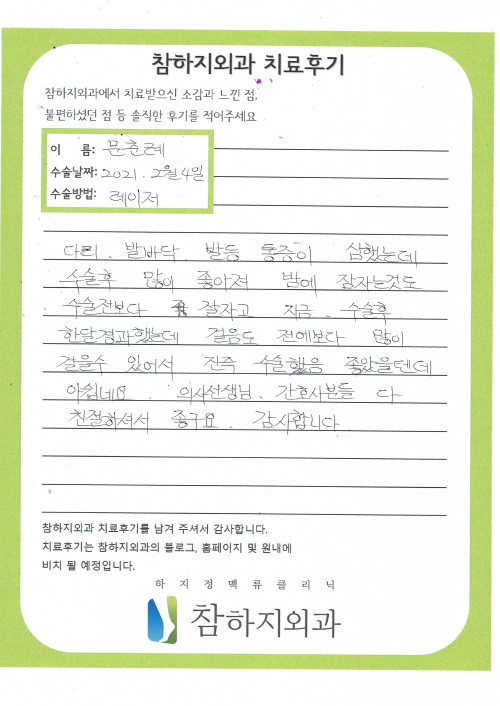 참하지외과 치료후기
참하지외과에서 치료받으신 소감과 느낀 점,
불편하셨던 점 등 솔직한 후기를 적어주세요
이 름: 문춘례
수술날짜: 2021. 2월 4일
수술방법: 레이저
다리. 발바닥. 발등 통증이 심했는데
수술후 많이 좋아져 밤에 잠자는것도
수술전보다 잘자고 지금. 수술후
한달경과했는데 걸음도 전에보다 많이
걸을수 있어서 진즉 수술했음 좋았을텐데
아쉽네요. 의사선생님. 간호사분들 다
친절하셔서 좋구요. 감사합니다
참하지외과 치료후기를 남겨 주셔서 감사합니다.
치료후기는 참하지외과의 블로그, 홈페이지 및 원내에
비치 될 예정입니다.
하지정맥류클리닉
참하지외과